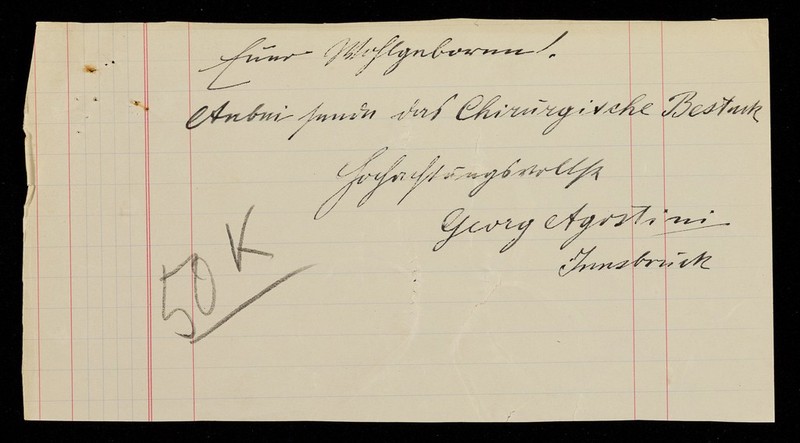 Euer Wohlgeboren!.
Anbei sende das Chirurgische Besteck
Hochachtungsvollst
Georg Agostini
Innsbruck
50 K